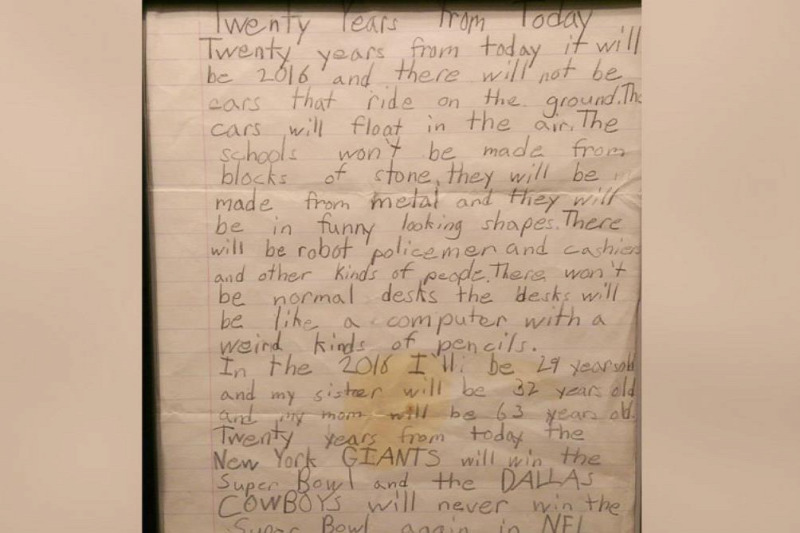 Twenty Years from Today
Twenty years from today it will
be 2016 and there will not be
cars that ride on the ground. The
cars will float in the air. The
schools won't be made from
blocks of stone, they will be
made from metal and they will
be in funny looking shapes. There
will be robot policemen and cashiers
and other kinds of people. There won't
be normal desks the desks will
be like a computer with a
weird kinds of pencils.
In the 2016 I'll be 29 years old
and my sister will be 32 years old
and my mom will be 63 years old.
Twenty years from today the
New York GIANTS will win the
Super Bowl and the DALLAS
COWBOYS will never win the
Super Bowl again in NFL